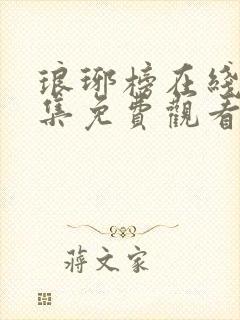 琅琊榜在綫
集免費觀看
蔣文家